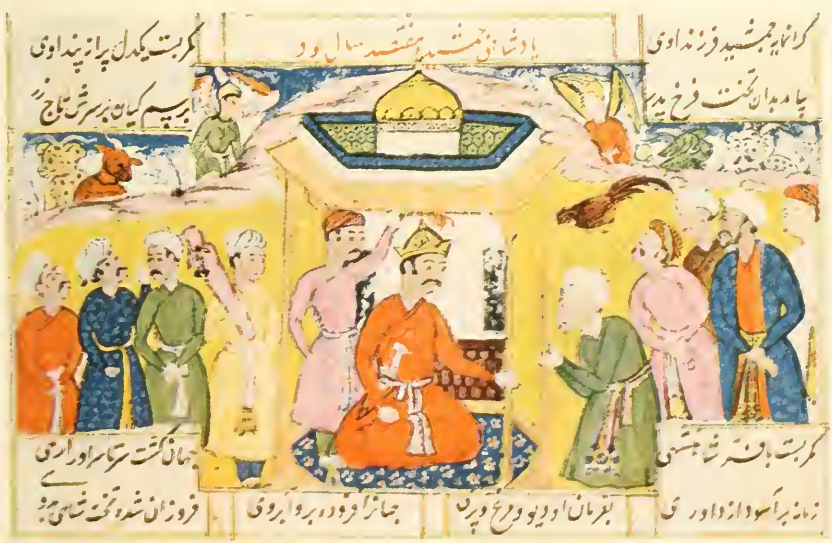 پادشاهی جمشید هفتصد سال بود
کرانمایه جمشید فرزند اوی کمر بست یکدل پر از پند اوی
بیامد بدان تخت فرخ پدر برسم کیان بر سرش تاج زر
کمر بست با فر شاهنشهی جهان گشت سرتاسر او را رهی
زمانه برآسود از داوری بفرمان او دیو و مرغ و پری جهانرا فزوده بدو آبروی فروزان شده تخت شاهی بدوی